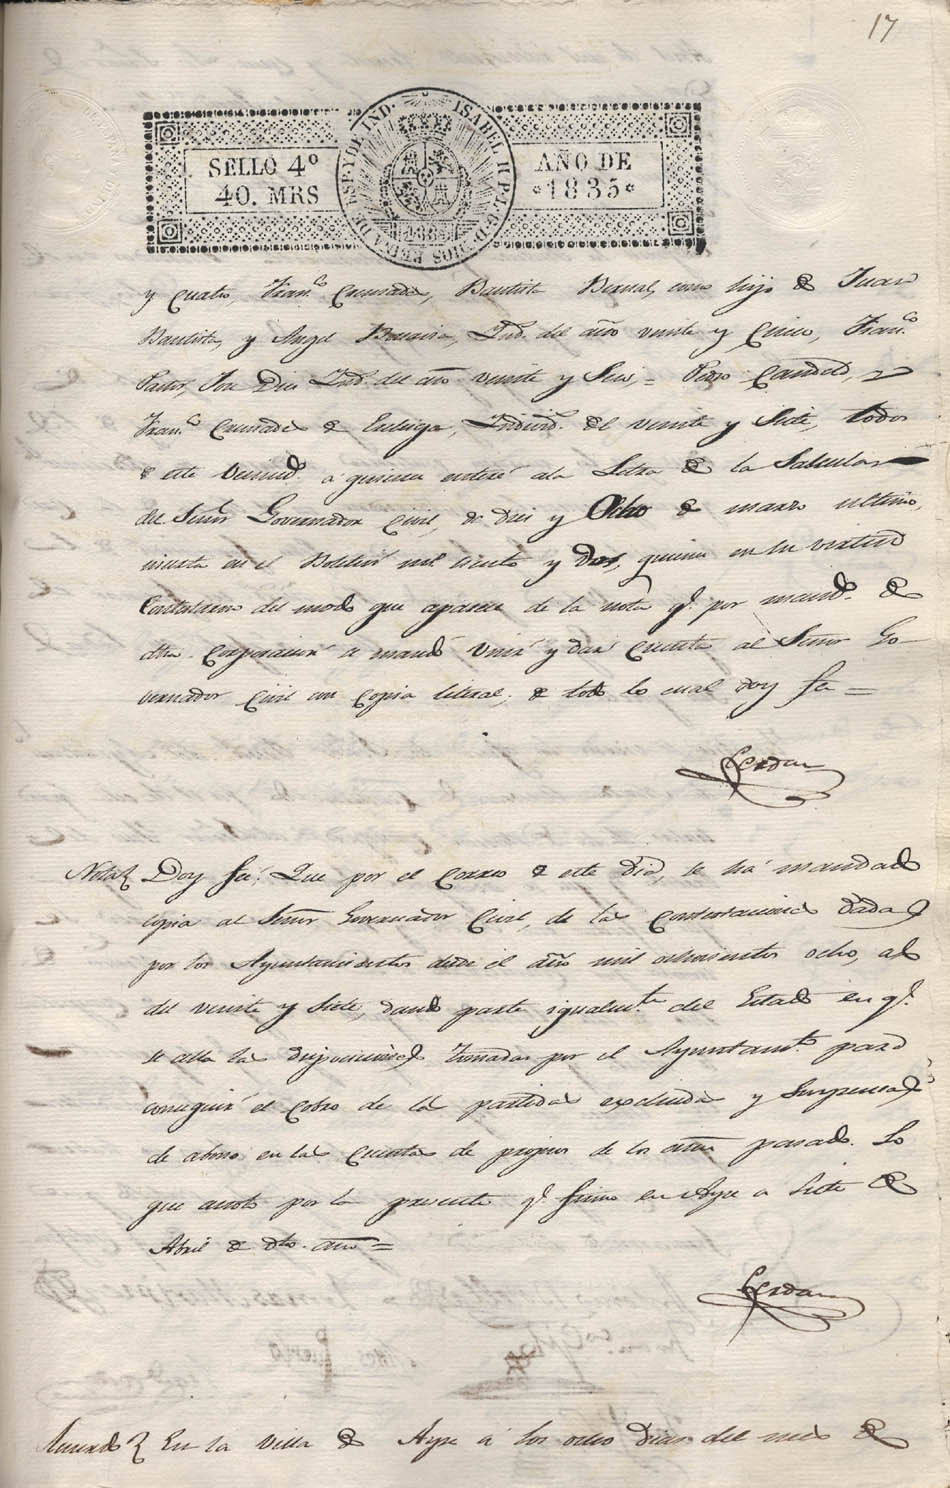 17
SELLO 4º
40. MRS
ISABEL II P. L. G. D. DIOS REINA DE ESP. Y DE IND.
1836
AÑO DE
*1835*
y cuatro, Franco Quesada, Bautista Bernal, como hijo de Juan
Bautista, y Angel Indo. del año veinte y Cinco, Franco
Jose Diez Indo. del año veinte y Seis, = Pedro Candela, y
Franco Quesada de Individo. del veinte y Siete, todos
de este Vecindo. a quienes enteré a la Letra de la
del Señor Governador Civil, de diez y Ocho de marzo ultimo,
inserta en el Boletin nul. ciento y dos, quienes en su virtud
Contestaron del modo que aparece de la nota q. por mando. de
dha. Corporacion se mandó Unir y dar Cuenta al Señor Go-
vernador Civil con Copia literal; de todo lo cual doy fe =
Cerdan
Nota Doy fe: Que por el Correo de este dia, se ha mandado
copia al Señor Governador Civil, de las Contestaciones dadas
por los Ayuntamientos desde el año mil ochocientos ocho, al
del veinte y Siete, dando parte igualmte. del Estado en q.
se alla las disposiciones tomadas por el Ayuntamto. para
conseguir el Cobro de las partidas excluidas y Suspensas
de abono en las Cuentas de propios de los años pasado. Lo
que anoto por la presente q. firmo en Aspe a Siete de
Abril de dho. año =
Cerdan
Acuerdo En la Villa de Aspe á los ocho Dias del mes de